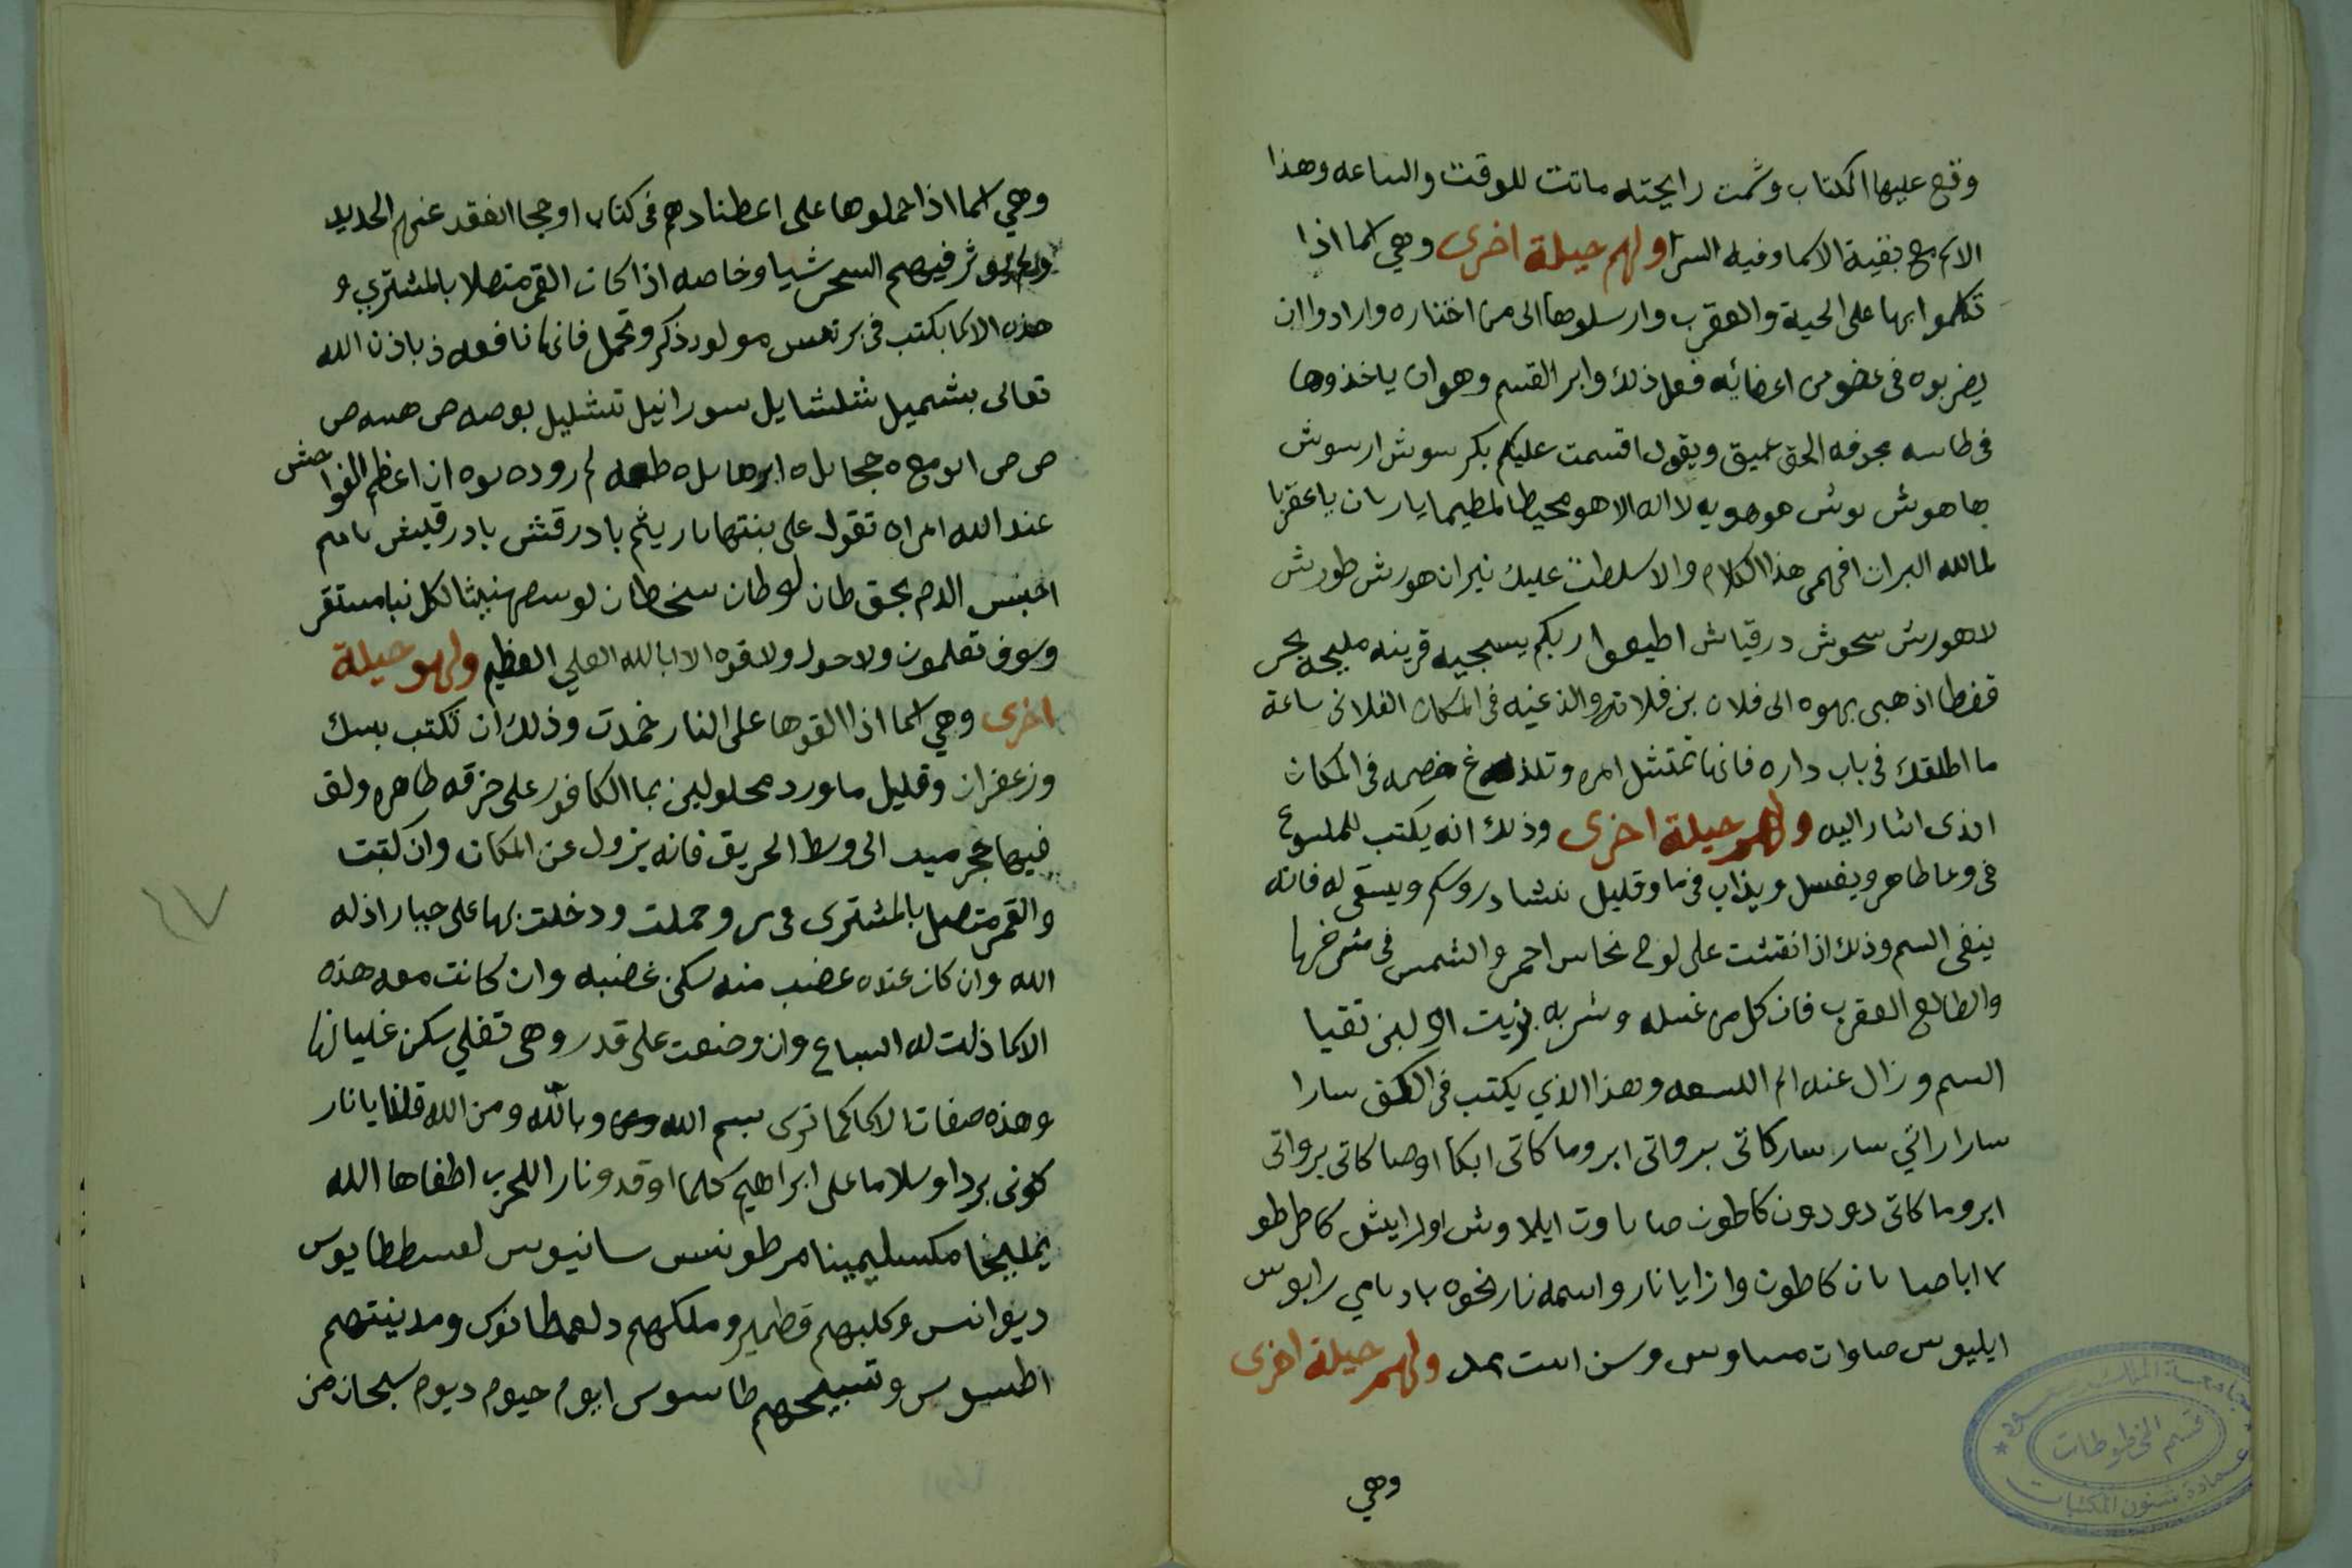 وقع عليها الكتاب وشمت رايحته ماتت للوقت والساعه وهذا
الاسم مع بقية الاسما وفيه السر ولهم حيلة اخرى وهي اسما اذا
تكلموا بها على الحية والعقرب وارسلوها الى من اختاره وارادوا ان
يضربوه في عضو من اعضائه فعل ذلك وابر القسم وهو ان ياخذوها
في طاسه مجوفه عميق ويقول اقسمت عليكم بكر سوش ارسوش
هاهوش بوش هوهويه لا اله الا هو محيطا لمطيما يا عقربا
افهمى هذا الكلام والا سلطت عليك نيران هورش طورش
لاهورش سحوش درقياش اطيعوا ربكم قرينه مليحه بحر
قفطا اذهبى الى فلان بن فلانه والذغيه في المكان الفلانى ساعة
ما اطلقك في باب داره فانها تمتثل امره وتلذغ خصمه في المكان
الذى اشار اليه ولهم حيلة اخرى وذلك انه يكتب للملسوع
في وعا طاهر ويغسل ويذاب في ما وقليل نشادر وسكر ويسقى له فانه
ينفى السم وذلك اذا نقشت على لوح نحاس احمر والشمس في شرفها
والطالع العقرب فان كل من غسله وشربه بزيت او لبن تقيا
السم وزال عنه الم اللسعه وهذا الذي يكتب في الكف سارا
سارا راتي سار سار كاتى برواتى ابروما كاتى ابكا اوصا كاتى برواتى
ابروما كاتى دعودعون كاطون صاباوت ايلا وش اورايش كاطرطو
٧ اباصابان كاطون وازايا نار واسمه نار نخوه بادبامي رابوس
ايليوس صاوات مساوس ولهم حيلة اخرى
وهي
وهي اسما اذا حملوها على اعضادهم في كتاب او حجاب انعقد عنهم الحديد
ولم يوثر فيهم السحر شيا وخاصه اذا كان القمر متصلا بالمشتري و
هذه الاسما بكتب في برنس مولود ذكر وتحمل فانها نافعه باذن الله
تعالى بشميل شلشايل سورانيل تشليل بوصه ص هسه ص
ص ص ان اعظم الفواحش
عند الله امراه تقول على بنتها باريثم بادرقش بادرقليش
احبس الدم بحق طان لوطان سنحطان لكل نبا مستقر
وسوف تعلمون ولا حول ولا قوه الا بالله العلي العظيم ولهم حيلة
اخرى وهي اسما اذا القوها على النار خمدت وذلك ان تكتب بمسك
وزعفران وقليل ماورد محلولين بما الكافور على خرقه طاهره ولف
فيها حجر الى وسط الحريق فانه يزول عن المكان وان كتبت
والقمر متصل بالمشترى وحملت ودخلت بها على جبار اذله
الله وان كان عنده غضب منه سكن غضبه وان كانت معه هذه
الاسما ذلت له السباع وان وضعت على قدر وهى تغلي سكن غليانها
وهذه صفات الاسما كما ترى بسم الله وبالله ومن الله قلنا يا نار
كونى بردا وسلاما على ابراهيم كلما اوقدو نارا للحرب اطفاها الله
يمليخا مكسليمينا مرطونس سانيوس
ديوانس وكلبهم قطمير وملكهم ومدينتهم
اطسوس وتسبيحهم طاسوس ايوم حيوم ديوم سبحان من
٤٧
جامعة الملك سعود
قسم المخطوطات
عمادة شئون المكتبات